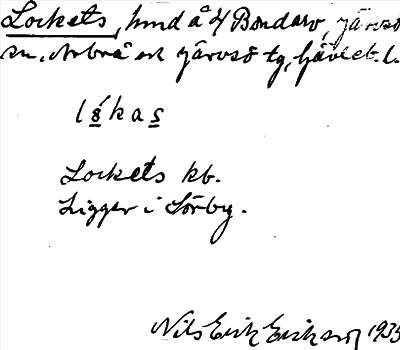 Lockets, hmd å 4/ Bondarv, Järvsö
sn. Arbrå och Järvsö tg, Gävleb. l.
lókas
Lockets kb.
Ligger i Sörby.
Nils Erik Eriksson 1935